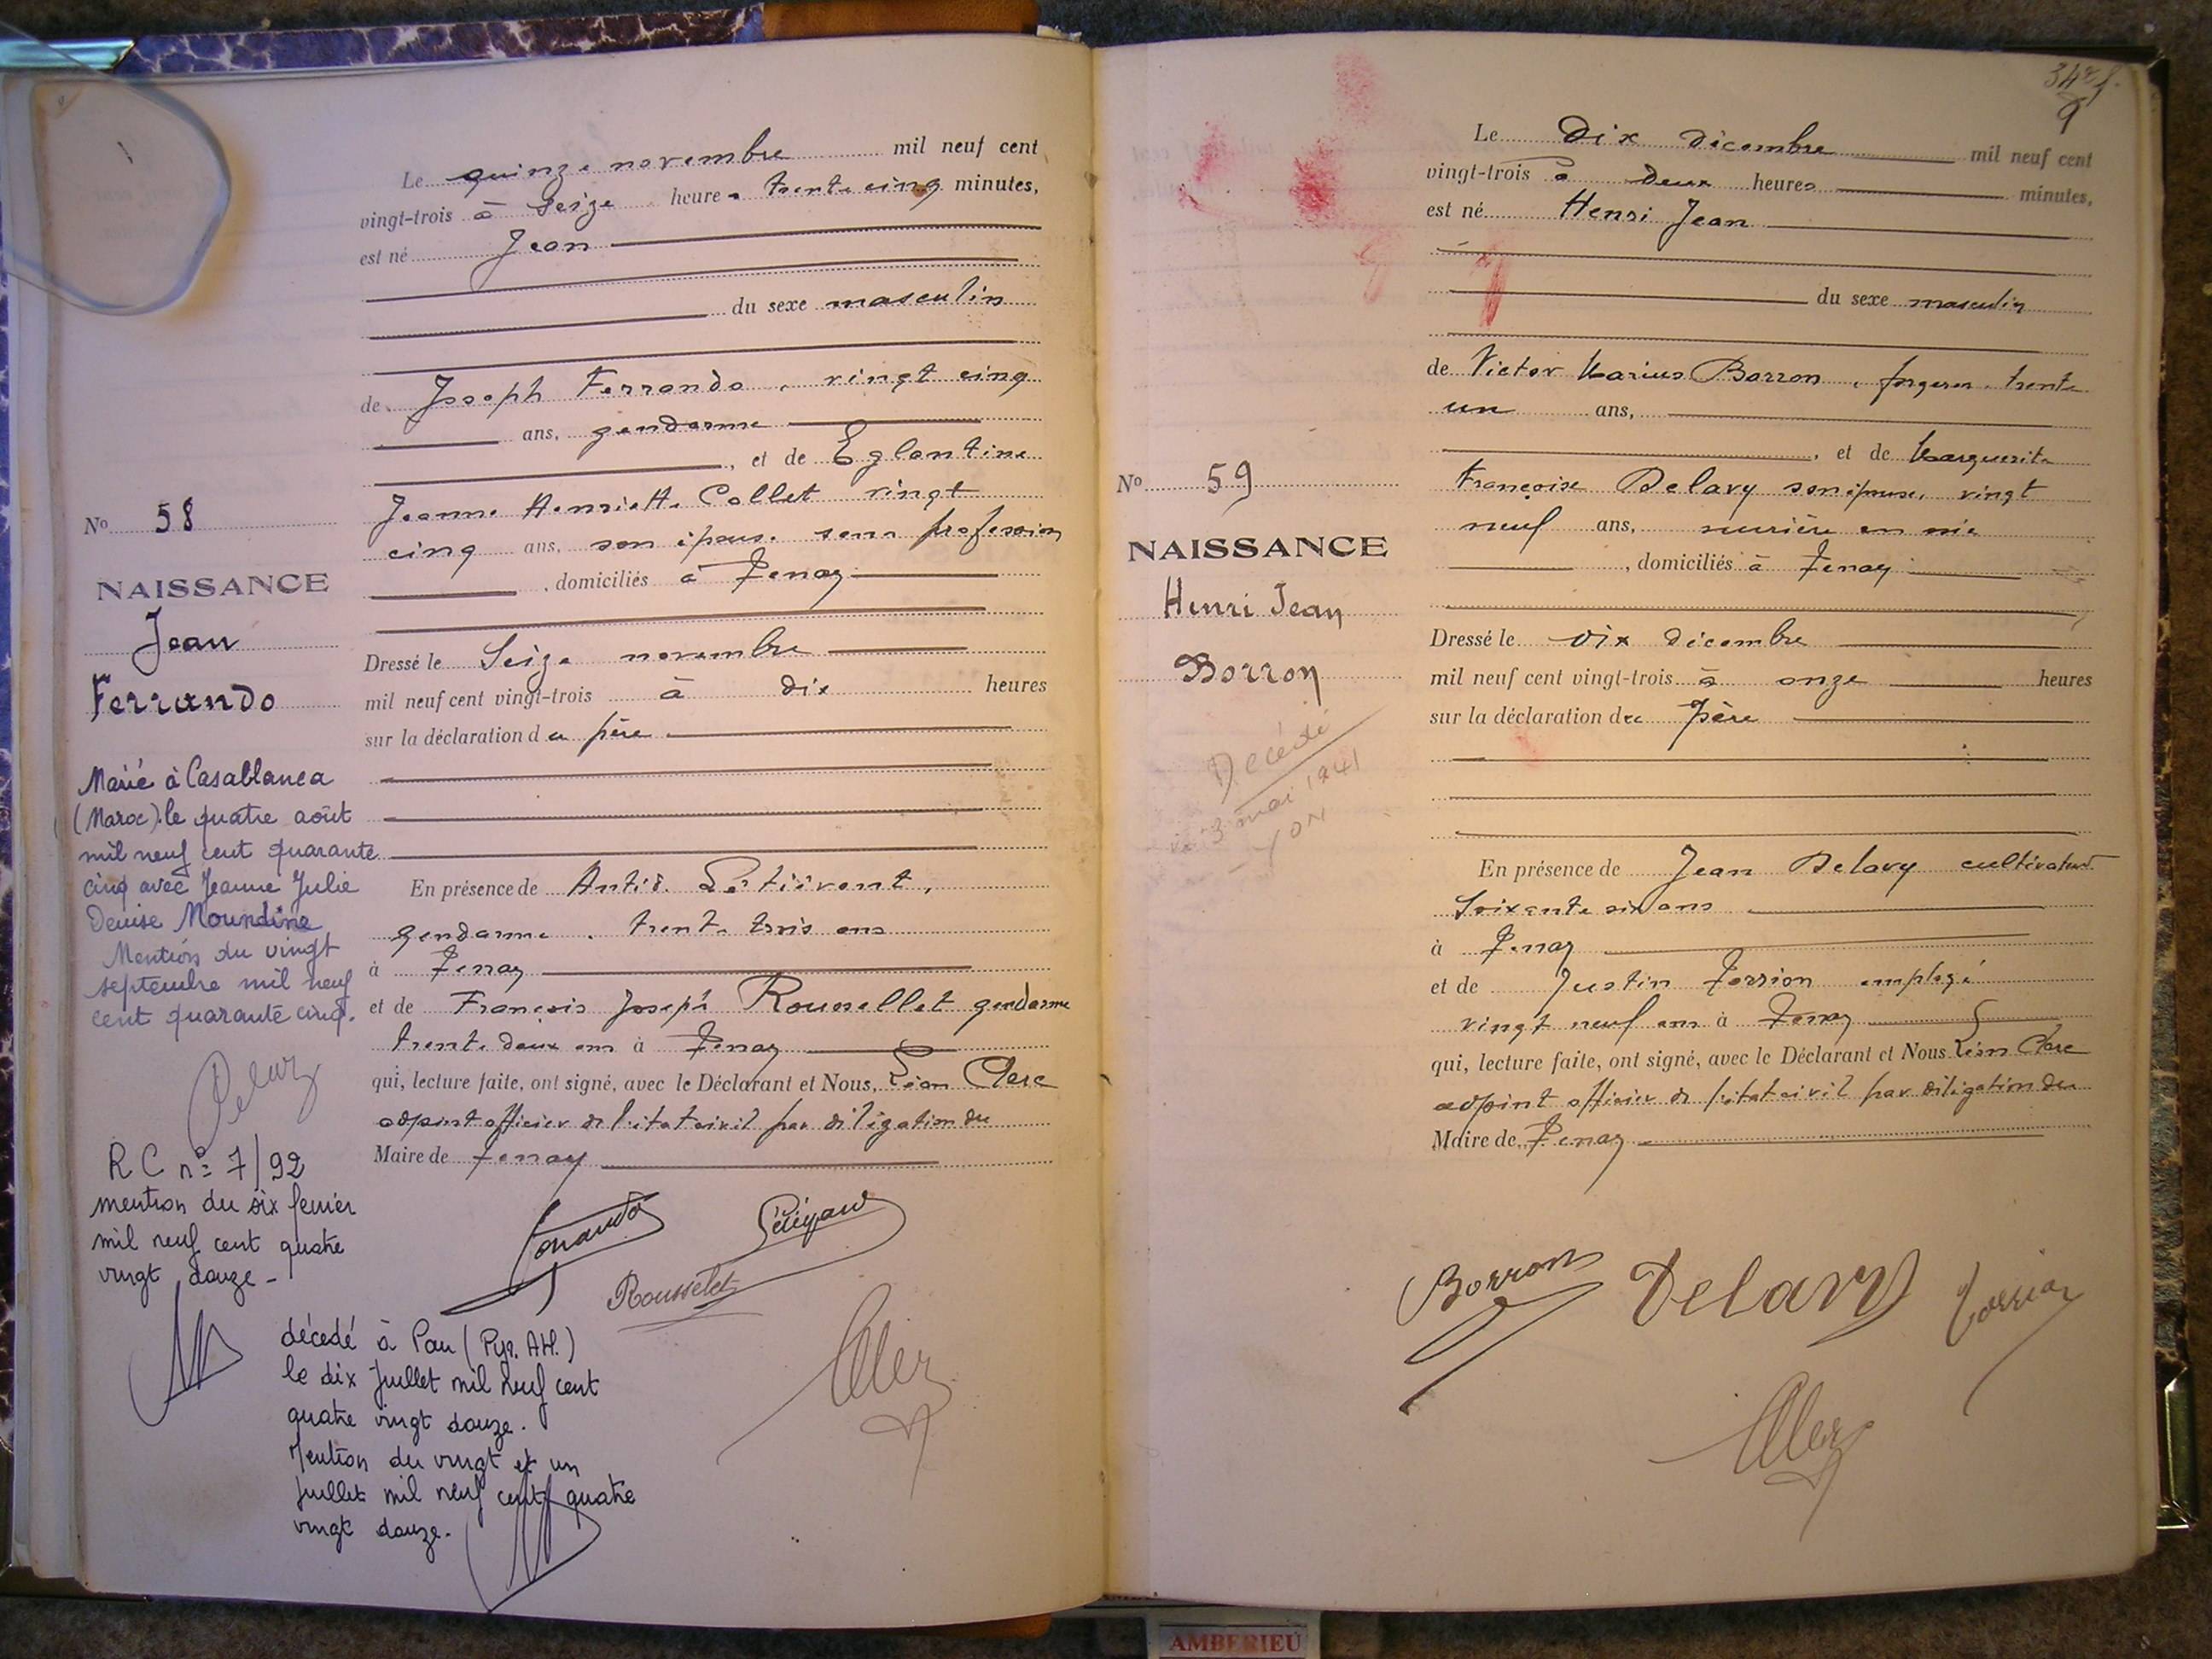 Le quinze novembre mil neuf cent
vingt-trois à Seize heures trente cinq minutes,
est né Jean
du sexe masculin
de Joseph Ferrando, vingt cinq
ans, gendarme
, et de Eglantine
Jeanne Henriette Collet vingt
cinq ans, son épouse sans profession
, domiciliés à Tenay
Dressé le Seize novembre
mil neuf cent vingt-trois à dix heures
sur la déclaration du père
En présence de
gendarme, trente trois ans
à Tenay
et de François Joseph Rousselet gendarme
trente deux ans à Tenay
qui, lecture faite, ont signé, avec le Déclarant et Nous, Léon Clerc
adjoint officier de l'état civil par délégation du
Maire de Tenay
Rousselet
No 58
NAISSANCE
Jean
Ferrando
Marié à Casablanca
(Maroc) le quatre août
mil neuf cent quarante
cinq avec Jeanne Julie
Denise Moundine
Mention du vingt
septembre mil neuf
cent quarante cinq.
R C n° 7/92
mention du six fevrier
mil neuf cent quatre
vingt douze -
décedé à Pau (Pyr. Atl.)
le dix Juillet mil neuf cent
quatre vingt douze.
Mention du vingt et un
Juillet mil neuf cent quatre
vingt douze.
Le Dix Décembre mil neuf cent
vingt-trois à Deux heures minutes,
est né Henri Jean
du sexe masculin
de Victor Marius Borron, forgeron, trente
un ans,
, et de Marguerite
Françoise Delavy son épouse, vingt
neuf ans,
, domiciliés à Tenay
Dressé le Dix Décembre
mil neuf cent vingt-trois à onze heures
sur la déclaration du Père
En présence de Jean Delavy cultivateur
Soixante six ans
à Tenay
et de Justin employé
vingt neuf ans à Tenay
qui, lecture faite, ont signé, avec le Déclarant et Nous Léon Clerc
adjoint officier de l'état civil par délégation du
Maire de Tenay
Borron Delavy
No 59
NAISSANCE
Henri Jean
Borron
Décédé
3 mai 1941
AMBERIEU